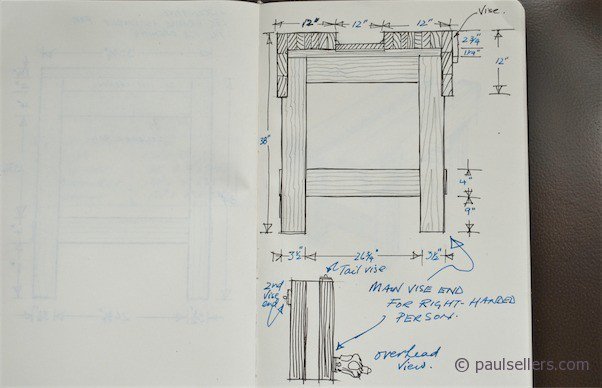 12" 12" 12"
Vise.
2¾"
1¼"
12"
38"
4"
9"
3½" 26¾" 3½"
Tail vise
2nd
vise
end
MAIN VISE END
FOR RIGHT-HANDED
PERSON.
overhead
view.
© paulsellers.com